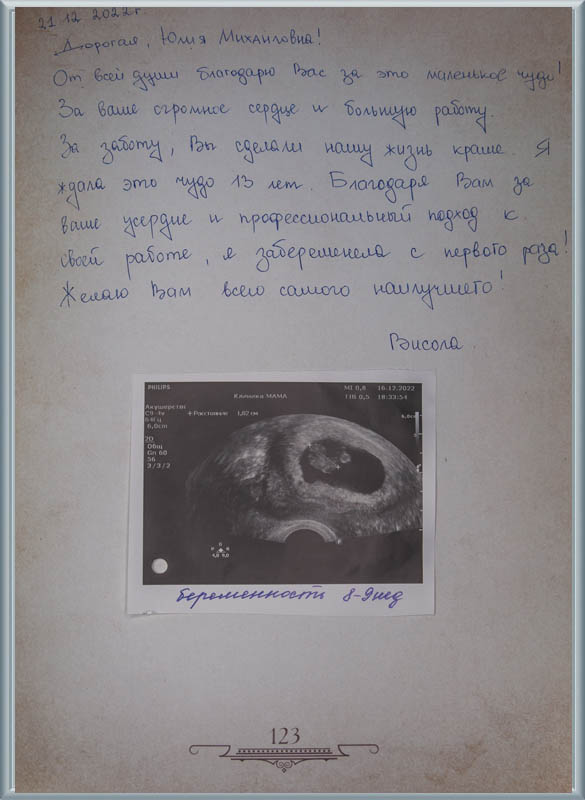 21.12.2022г.
Дорогая, Юлия Михайловна!
От всей души благодарю Вас за это маленькое чудо!
За ваше огромное сердце и большую работу.
За заботу, Вы сделали нашу жизнь краше. Я
ждала это чудо 13 лет. Благодаря Вам за
ваше усердие и профессиональный подход к
своей работе, я забеременела с первого раза!
Желаю Вам всего самого наилучшего!
Висола.
PHILIPS
MI 0,8 16.12.2022
Клиника МАМА
TIb 0,5 18:33:54
Акушерство
C9-4v
64Гц
6,0cm
+ Расстояние 1,82 см
6,0см
2D
Общ
Gn 60
56
3/3/2
беременность 8-9 нед
123